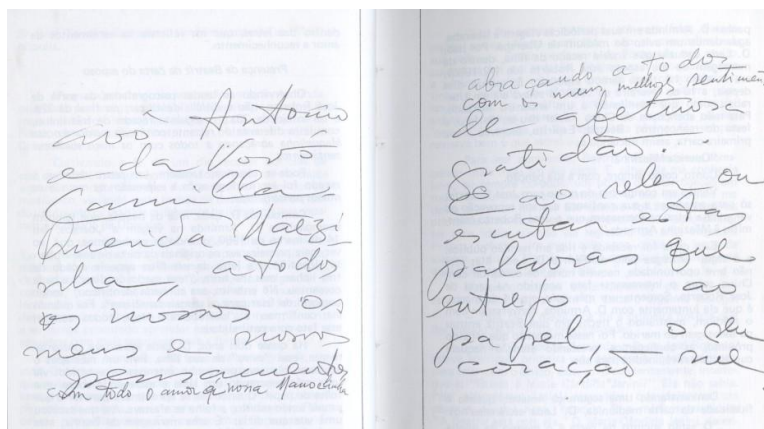 avô Antonio
e da Vovó
Camilla.
Querida Näezi
nha, a todos
os nossos os
meus e nossos
pensamentos
com todo o amor nossa
abraçando a todos
com os meus melhores sentimen
de afetuosa
gratidão..
Se ao reler ou
escutar estas
palavras que
entrego ao
papel, o seu
coração me